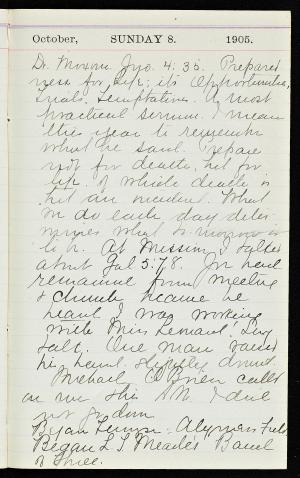 October, SUNDAY 8. 1905.
Dr. Moxom Jno. 4:35. Prepared
ness for Life; its Opportunities,
Trials, Temptations. A most
practical sermon. I mean
this year to remember
what he said. Prepare
not for death, but for
life, of which death is
but an incident. What
we do each day deter-
mines what to-morrow is
to be. At Mission I talked
about Gal 5:7,8. Jn
remained from meeting
& church because he
heard I was working
with Miss Leonard. Dog
talk. One man raised
his hand slightly drunk.
Michael O'Brien called
on me this P.M. I did
not go down.
Began
Began L T Meade's Band
of Three.